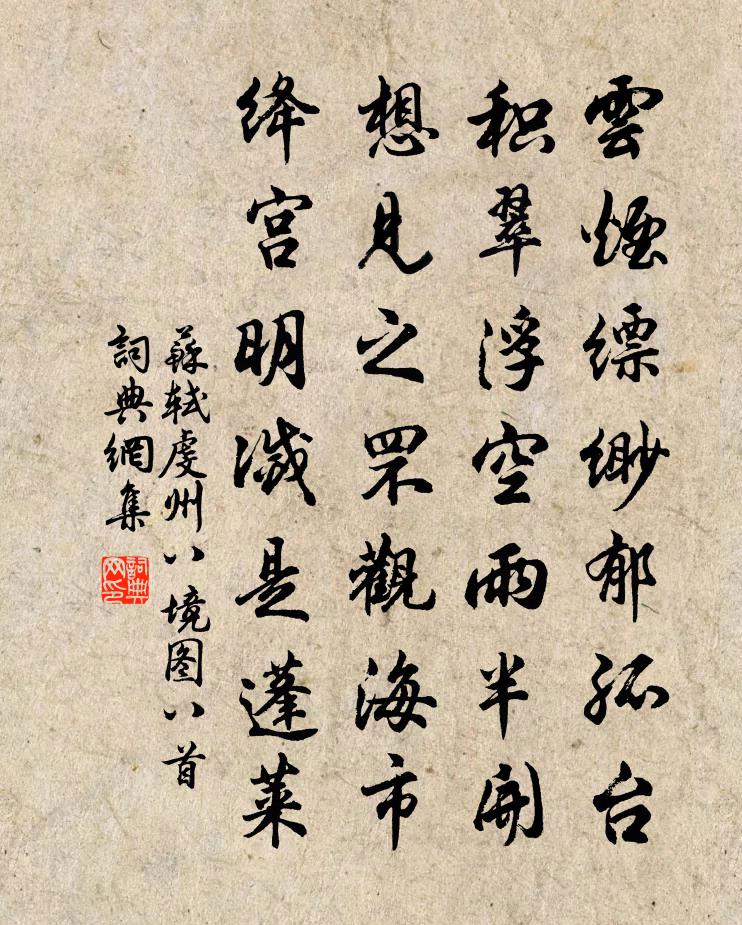 雲煙縹緲郁孤台
积翠浮空雨半開
想見之罘觀海市
绛宫明滅是蓬萊
蘇軾虔州八境图八首
詞典網集
詞典网印